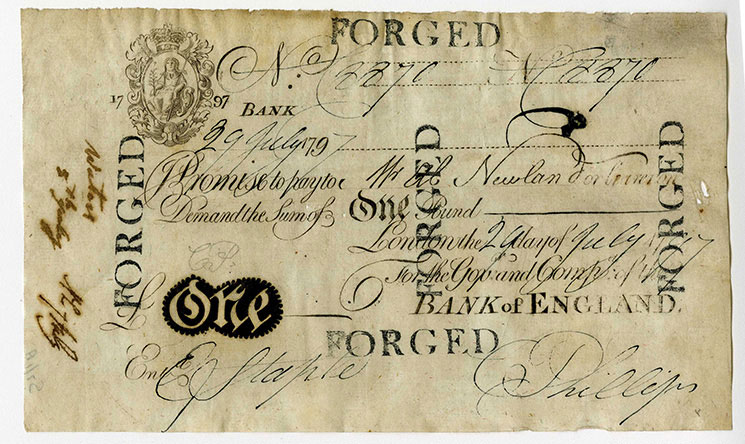 FORGED
No. 2870 No 2870
1797
BANK
29 July 1797
I Promise to pay to Mr Ab. Newland or bearer on
Demand the Sum of One Pound
London the 29 day of July 1797
For the Govr. and Compa. of the
£ One
BANK of ENGLAND.
FORGED
FORGED
FORGED
FORGED
Entd. E Staple
C Phillips